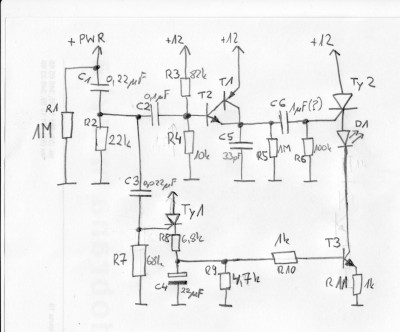 +PWR
+12
+12
C1
0,22µF
R3
82k
T1
Ty2
R1
C2
0,1µF
T2
C6
1µF(?)
D1
1M
R2
22k
R4
10k
C5
33pF
R5
1M
R6
100k
C3
0,022µF
Ty1
R8
6,8k
R7
68k
C4
22µF
R9
4,7k
1k
R10
T3
R11
1k